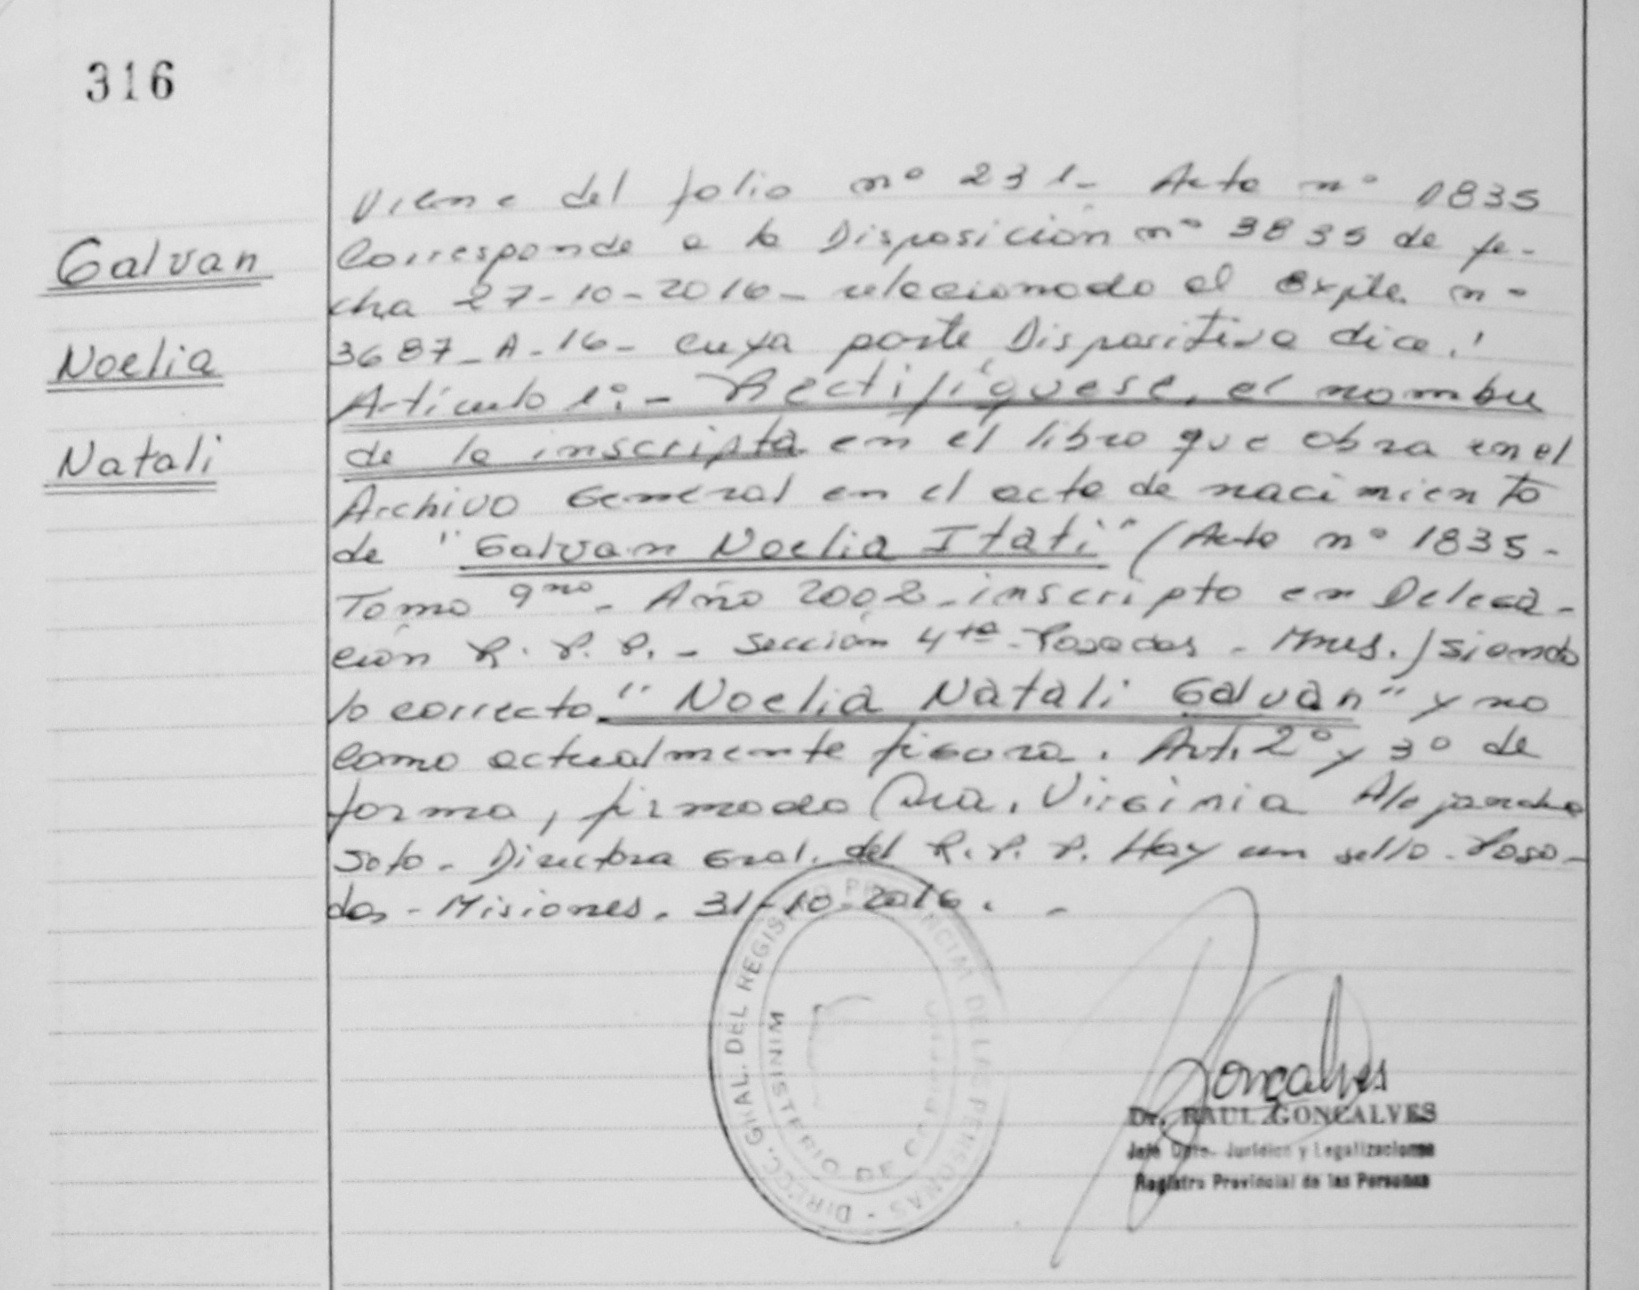 316
Galvan
Noelia
Natali
Viene del folio nº 231- Acta nº 1835
Corresponde a la Disposición nº 3835 de fe-
cha 27-10-2016- relacionado al Expte. nº
3687-A-16- cuya parte Dispositiva dice:
Artículo 1º:- Rectifíquese, el nombre
de la inscripta en el libro que obra en el
Archivo General en el acta de nacimiento
de "Galvan Noelia Itati" (Acta nº 1835-
Tomo 9no- Año 2002- inscripto en Delega-
ción R.P.P.- Sección 4ta- Posadas- Mnes.) siendo
lo correcto "Noelia Natali Galván" y no
como actualmente figura. Art. 2º y 3º de
forma, firmado Dra. Virginia Alejandra
Soto- Directora Gral. del R.P.P. Hay un sello- Posa-
das- Misiones. 31-10-2016. -
DIRECC. GRAL. DEL REGISTRO PROVINCIAL DE LAS PERSONAS -
MINISTERIO DE GOBIERNO
Gonçalves
Dr. RAUL GONÇALVES
Jefe Dpto. Jurídico y Legalizaciones
Registro Provincial de las Personas